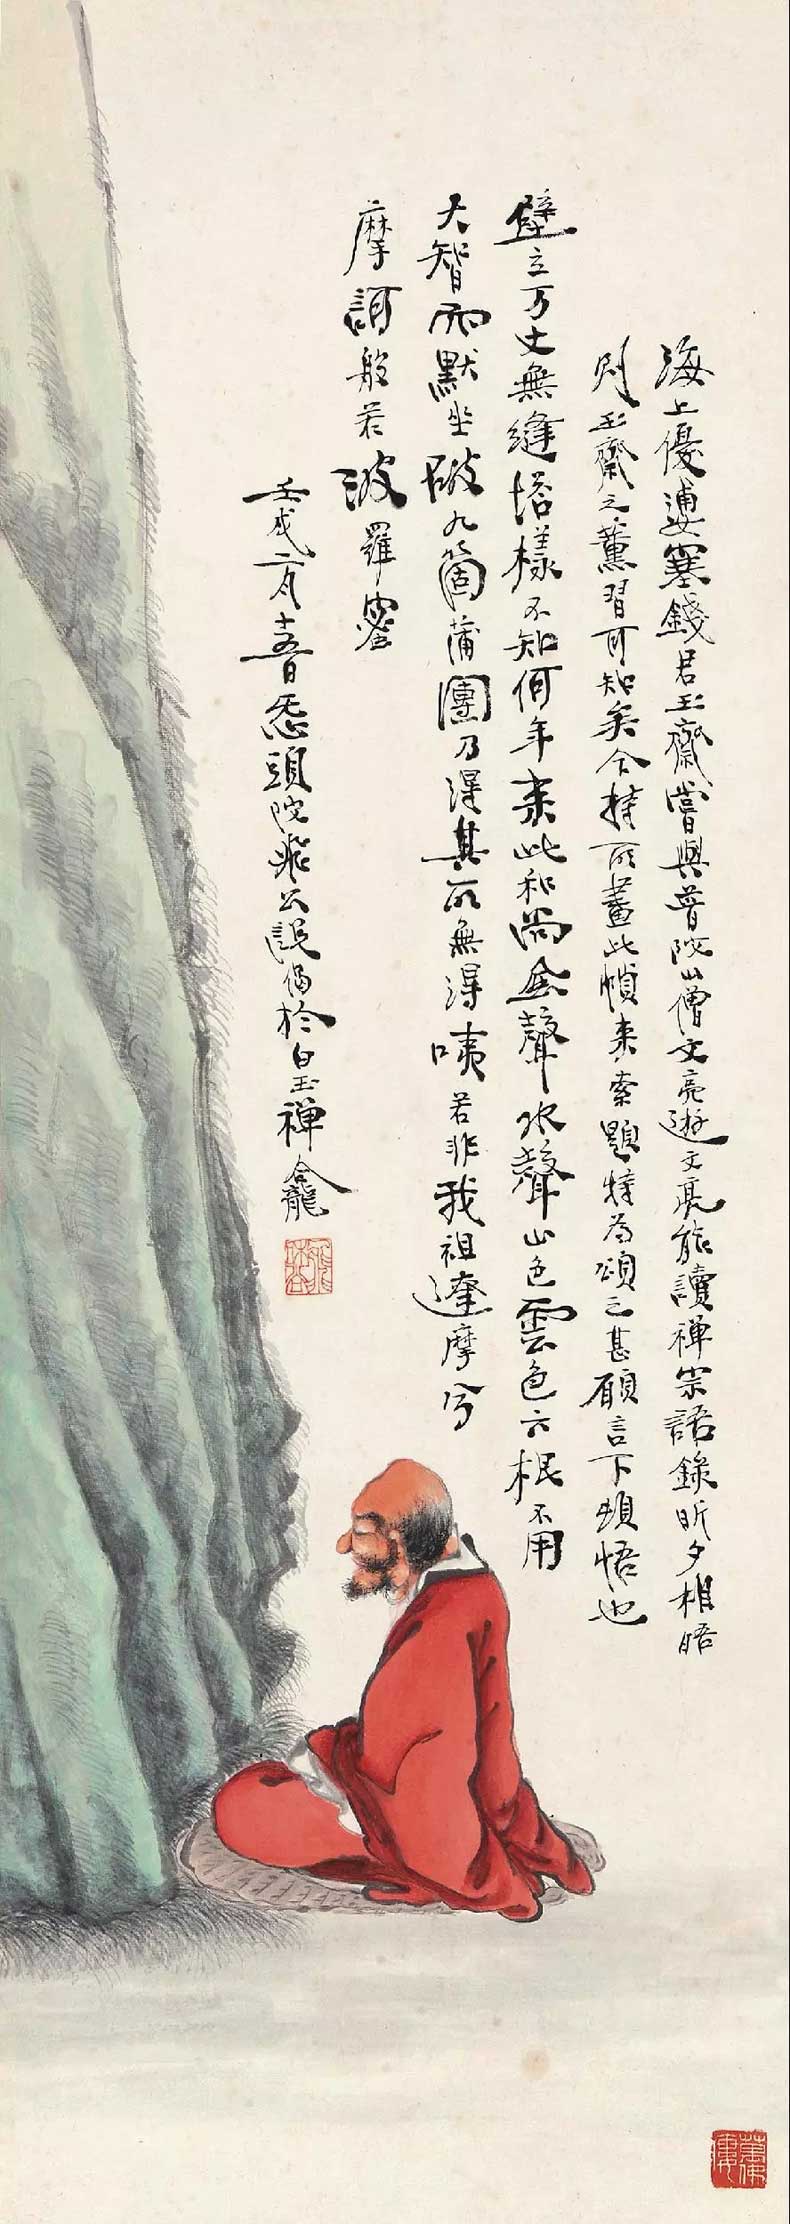 海上優婆塞錢君玉齋嘗與普陀山僧文亮遊文亮能讀禪宗語錄昕夕相晤
則玉齋之薰習可知矣今持所畫此幀來索題特為頌之甚願言下頓悟也
壁立万丈無縫塔樣不知何年來此和尚金聲水聲山色雲色六根不用
大智而默坐破九箇蒲團乃得其所無得咦若非我祖達摩兮
摩訶般若波羅蜜
壬戌二月十五日忝頭陀飛公說偈於白玉禪龕